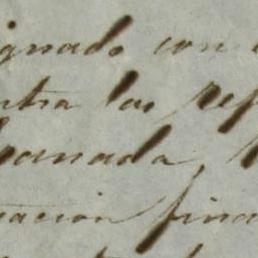 ignado con
ntra las ref
panada,
uacion fina